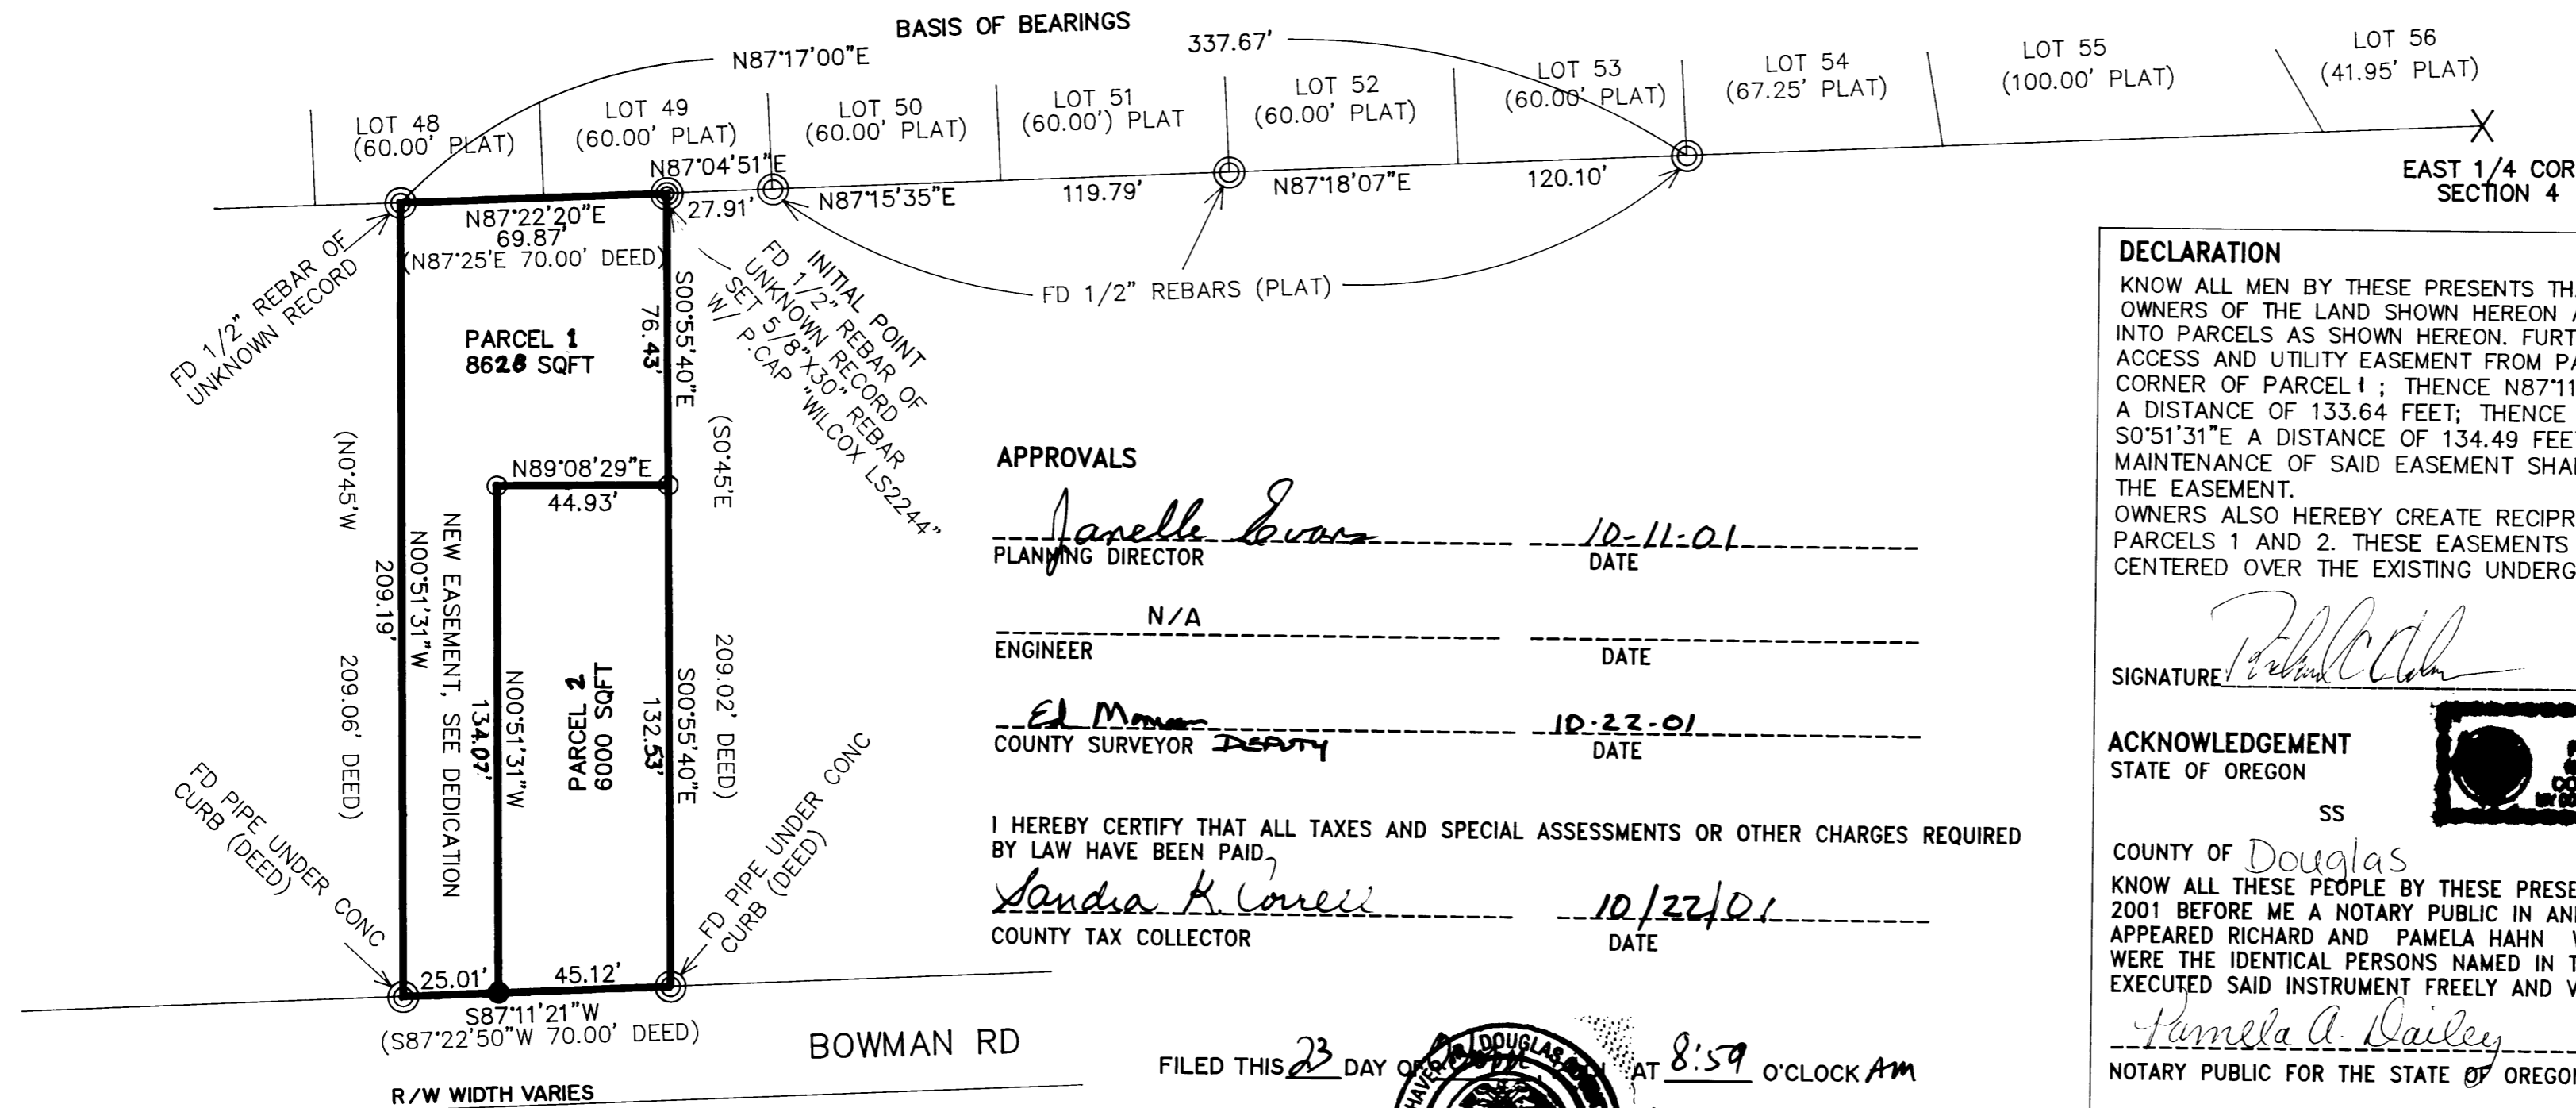 BASIS OF BEARINGS
N87°17'00"E
337.67'
LOT 48
(60.00' PLAT)
LOT 49
(60.00' PLAT)
LOT 50
(60.00' PLAT)
LOT 51
(60.00') PLAT
LOT 52
(60.00' PLAT)
LOT 53
(60.00' PLAT)
LOT 54
(67.25' PLAT)
LOT 55
(100.00' PLAT)
LOT 56
(41.95' PLAT)
N87°04'51"E
27.91'
N87°15'35"E
119.79'
N87°18'07"E
120.10'
EAST 1/4 COR
SECTION 4
N87°22'20"E
69.87'
(N87°25'E 70.00' DEED)
FD 1/2" REBAR OF
UNKNOWN RECORD
INITIAL POINT
FD 1/2" REBAR OF
UNKNOWN RECORD
SET 5/8"X30" REBAR
W/ P.CAP "WILCOX LS2244"
FD 1/2" REBARS (PLAT)
PARCEL 1
8628 SQFT
S00°55'40"E
76.43'
(S0°45'E
209.02' DEED)
N89°08'29"E
44.93'
(N0°45'W
209.06' DEED)
N00°51'31"W
209.19'
NEW EASEMENT, SEE DEDICATION
N00°51'31"W
134.07'
PARCEL 2
6000 SQFT
S00°55'40"E
132.53'
FD PIPE UNDER CONC
CURB (DEED)
FD PIPE UNDER CONC
CURB (DEED)
25.01'
45.12'
S87°11'21"W
(S87°22'50"W 70.00' DEED)
BOWMAN RD
R/W WIDTH VARIES
APPROVALS
Janelle Evans 10-11-01
PLANNING DIRECTOR DATE
N/A
ENGINEER DATE
Ed 10-22-01
COUNTY SURVEYOR DEPUTY DATE
I HEREBY CERTIFY THAT ALL TAXES AND SPECIAL ASSESSMENTS OR OTHER CHARGES REQUIRED
BY LAW HAVE BEEN PAID,
Sandra K. Correll 10/22/01
COUNTY TAX COLLECTOR DATE
FILED THIS 23 DAY OF AT 8:59 O'CLOCK AM
DOUGLAS
DECLARATION
KNOW ALL MEN BY THESE PRESENTS TH
OWNERS OF THE LAND SHOWN HEREON
INTO PARCELS AS SHOWN HEREON. FURT
ACCESS AND UTILITY EASEMENT FROM PA
CORNER OF PARCEL 1; THENCE N87°11
A DISTANCE OF 133.64 FEET; THENCE
S0°51'31"E A DISTANCE OF 134.49 FEE
MAINTENANCE OF SAID EASEMENT SHA
THE EASEMENT.
OWNERS ALSO HEREBY CREATE RECIPR
PARCELS 1 AND 2. THESE EASEMENTS
CENTERED OVER THE EXISTING UNDERG
SIGNATURE
ACKNOWLEDGEMENT
STATE OF OREGON
SS
COUNTY OF Douglas
KNOW ALL THESE PEOPLE BY THESE PRESE
2001 BEFORE ME A NOTARY PUBLIC IN AN
APPEARED RICHARD AND PAMELA HAHN
WERE THE IDENTICAL PERSONS NAMED IN T
EXECUTED SAID INSTRUMENT FREELY AND V
Pamela A. Dailey
NOTARY PUBLIC FOR THE STATE OF OREGON